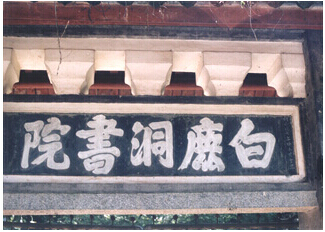 白鹿洞書院